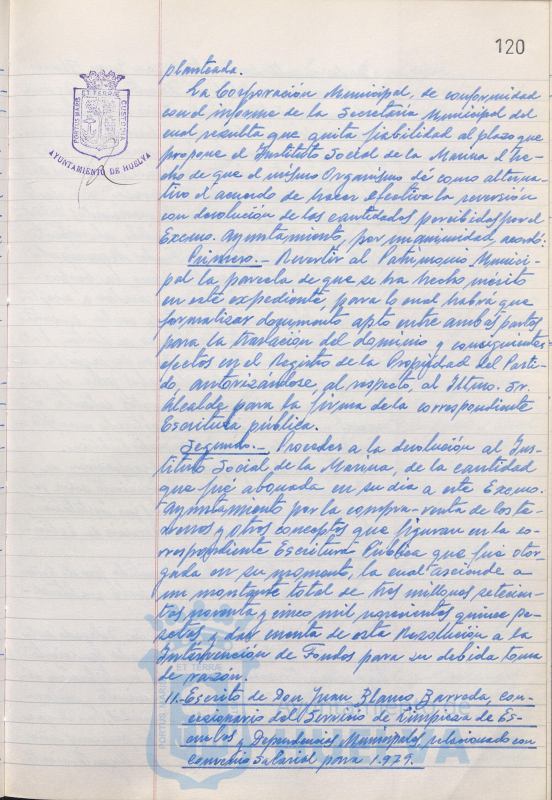 120
PORTUS MARIS ET TERRAE CUSTODIA
AYUNTAMIENTO DE HUELVA
planteada.
La Corporación Municipal, de conformidad
con el informe de la Secretaría Municipal del
cual resulta que quita fiabilidad al plazo que
propone el Instituto Social de la Marina el he-
cho de que el mismo Organismo dé como alterna-
tiva el acuerdo de hacer efectiva la reversión
con devolución de las cantidades percibidas por el
Excmo. Ayuntamiento, por unanimidad, acordó:
Primero.- Revertir al Patrimonio Munici-
pal la parcela de que se ha hecho mérito
en este expediente, para lo cual habrá que
formalizar documento apto entre ambas partes
para la traslación del dominio y consiguientes
efectos en el Registro de la Propiedad del Parti-
do, autorizándose, al respecto, al Iltmo. Sr.
Alcalde para la firma de la correspondiente
Escritura pública.
Segundo.- Proceder a la devolución al Ins-
tituto Social de la Marina, de la cantidad
que fué abonada en su día a este Excmo.
Ayuntamiento por la compra-venta de los te-
rrenos y otros conceptos que figuran en la co-
rrespondiente Escritura Pública que fue otor-
gada en su momento, la cual asciende a
un montante total de tres millones setecien-
tas noventa y cinco mil novecientas quince pe-
setas y dar cuenta de esta Resolución a la
Intervención de Fondos para su debida toma
de razón.
11.- Escrito de Don Juan Blanco Barroda, con-
cesionario del Servicio de Limpieza de Es-
cuelas y Dependencias Municipales, relacionado con
convenio Salarial para 1.979.